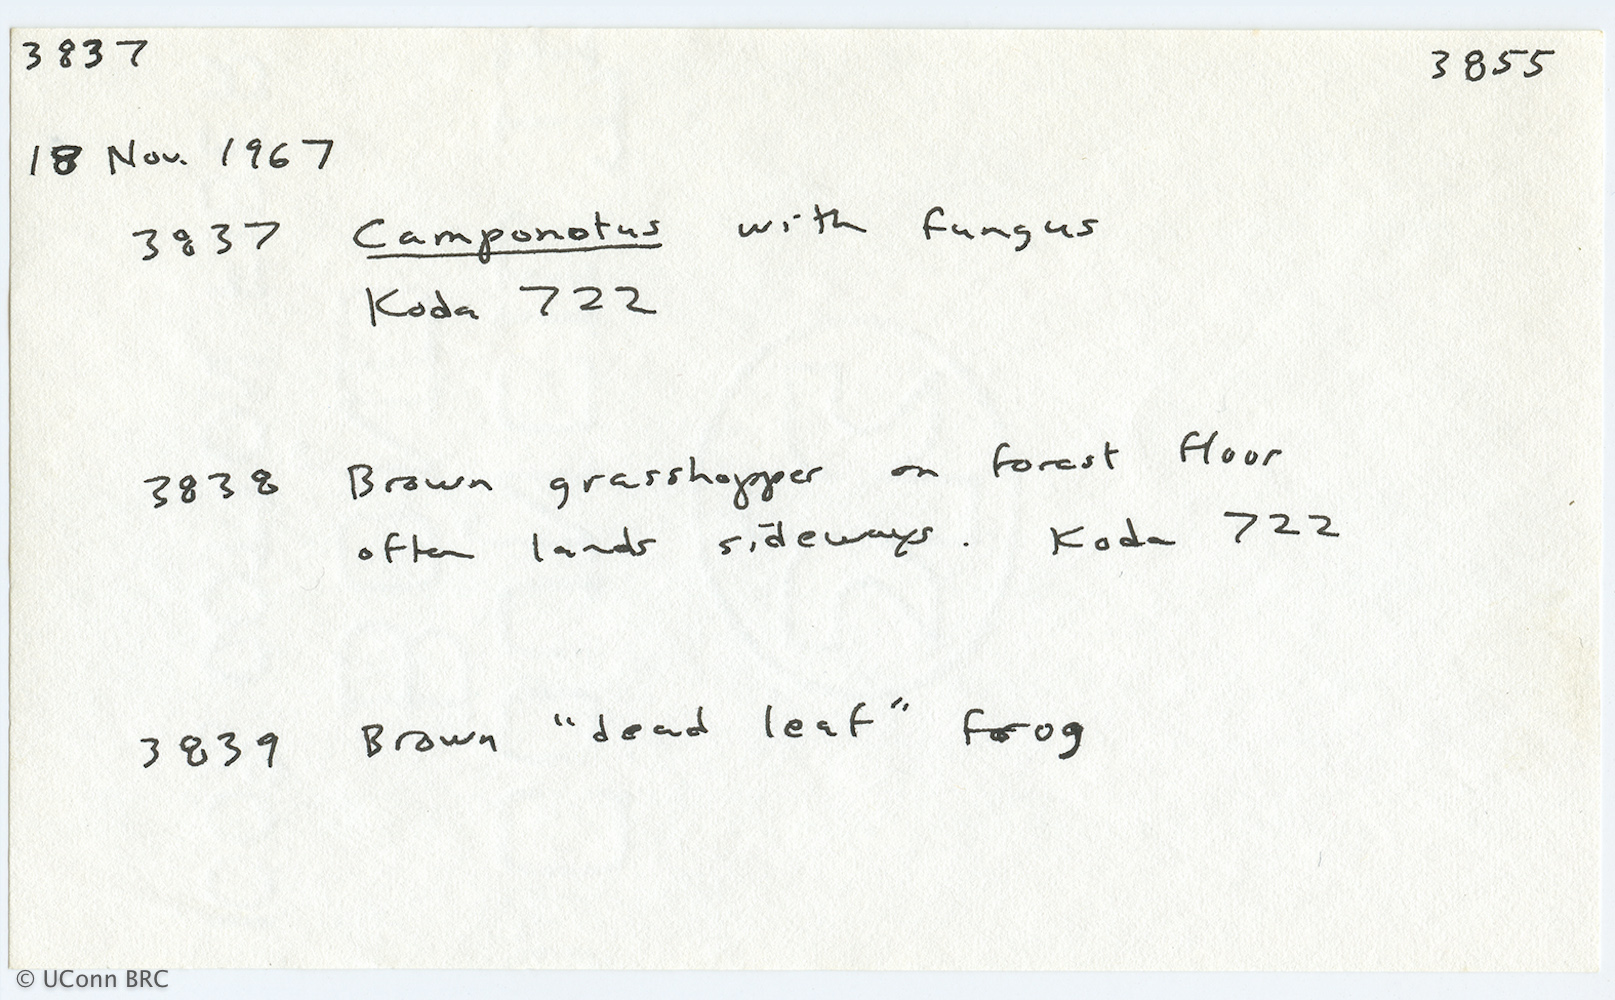 3837 3855
18 Nov. 1967
3837 Camponotus with fungus
Koda 722
3838 Brown grasshopper on forest floor
often lands sideways. Koda 722
3839 Brown "dead leaf" frog
© UConn BRC